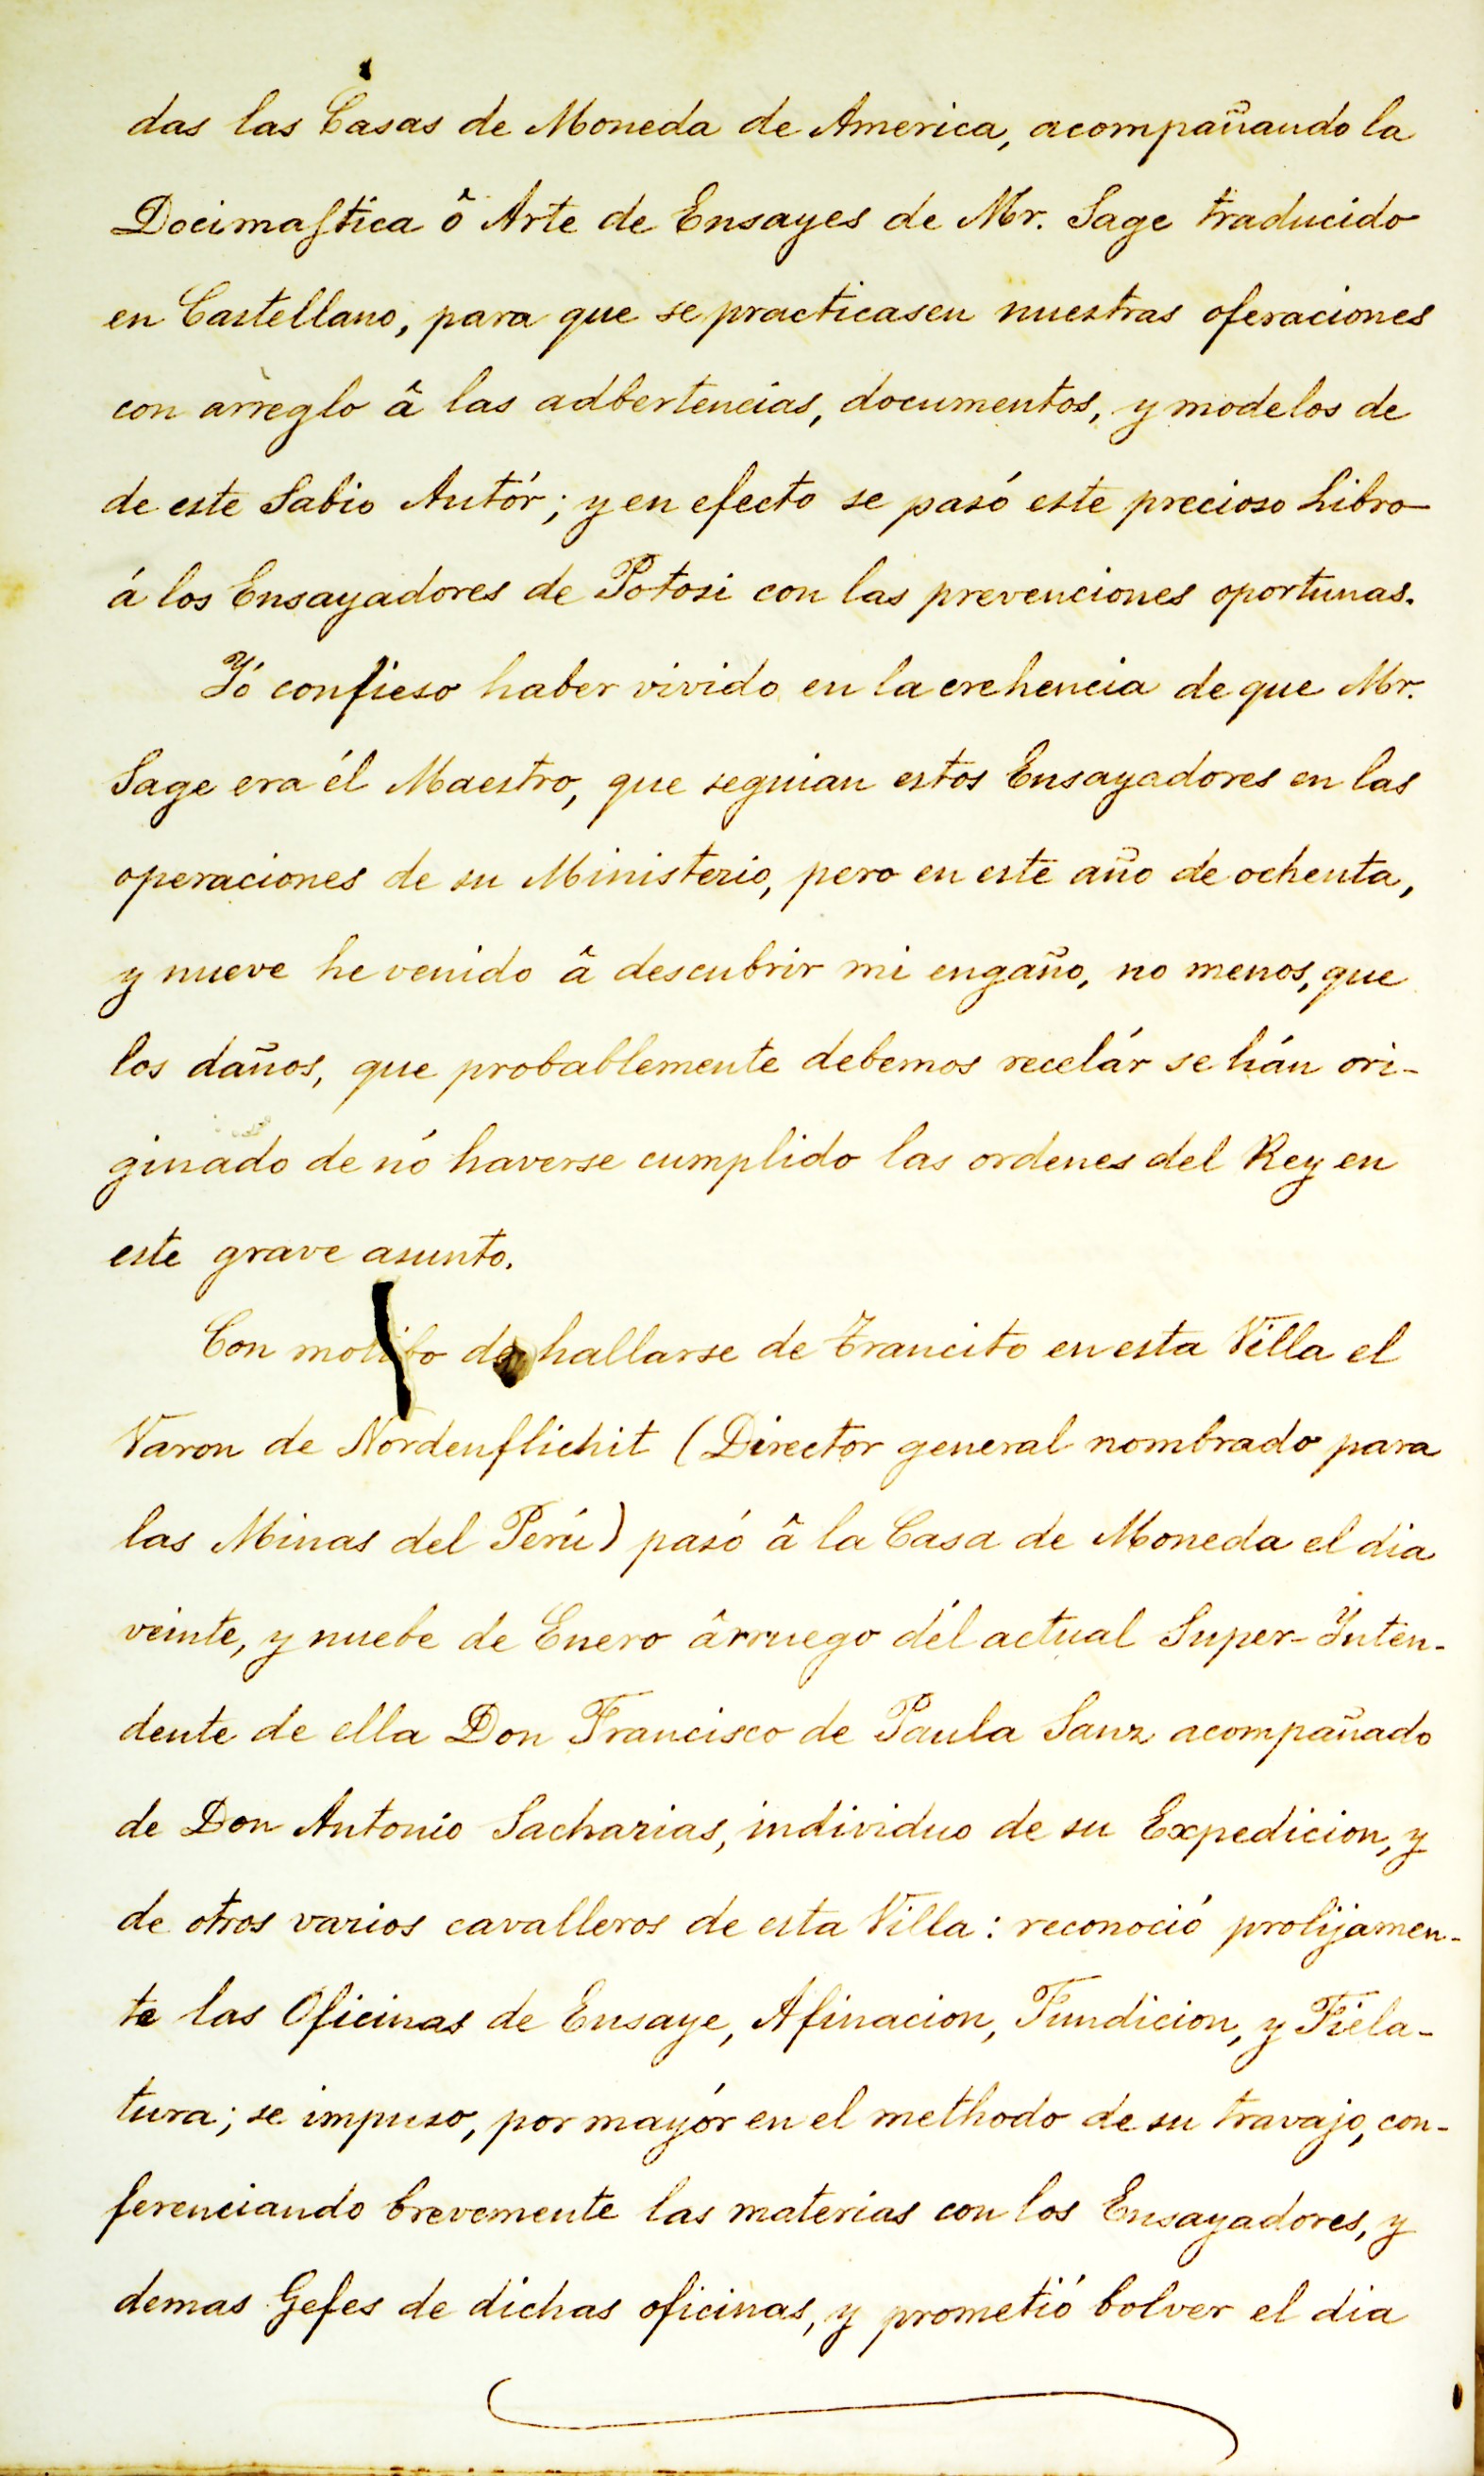 das las Casas de Moneda de America, acompañando la
Docimastica ô Arte de Ensayes de Mr. Sage traducido
en Castellano, para que se practicasen nuestras operaciones
con arreglo â las adbertencias, documentos, y modelos de
de este Sabio Autór; y en efecto se pasó este precioso Libro
á los Ensayadores de Potosi con las prevenciones oportunas.
Yó confieso haber vivido en la crehencia de que Mr.
Sage era él Maestro, que seguian estos Ensayadores en las
operaciones de su Ministerio, pero en este año de ochenta,
y nueve he venido â descubrir mi engaño, no menos, que
los daños, que probablemente debemos recelár se hán ori-
ginado de nó haverse cumplido las ordenes del Rey en
este grave asunto.
Con motibo de hallarse de Trancito en esta Villa el
Varon de Nordenflichit (Director general nombrado para
las Minas del Perú) pasó â la Casa de Moneda el dia
veinte, y nuebe de Enero ârruego dél actual Super-Ynten-
dente de ella Don Francisco de Paula Sanz acompañado
de Don Antonio Sacharias, individuo de su Expedicion, y
de otros varios cavalleros de esta Villa: reconoció prolijamen-
te las Oficinas de Ensaye, Afinacion, Fundicion, y Fiela-
tura; se impuso, por mayór en el methodo de su travajo, con-
ferenciando brevemente las materias con los Ensayadores, y
demas Gefes de dichas oficinas, y prometió bolver el dia